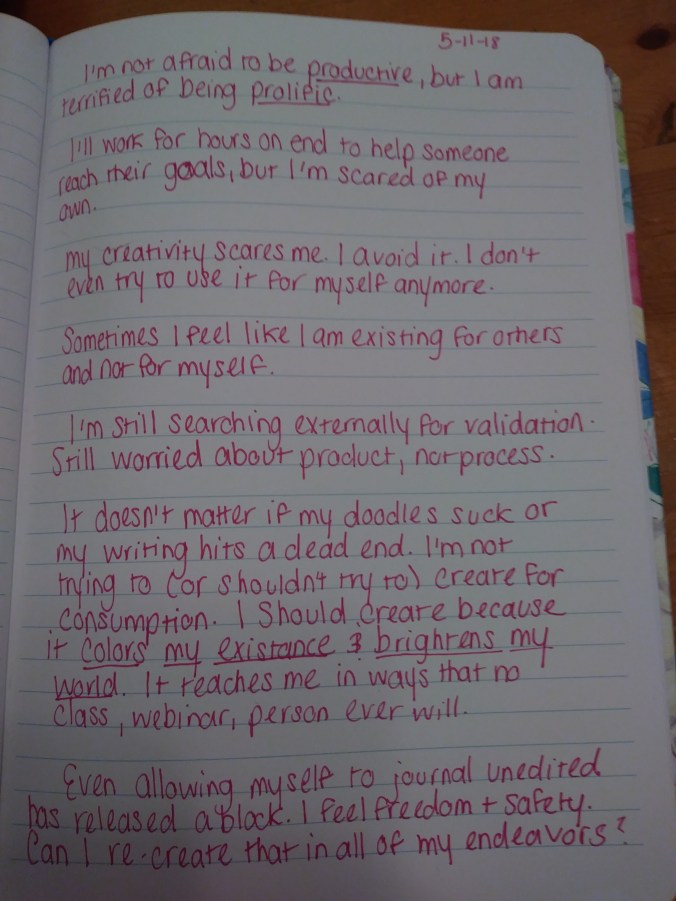 5-11-18
I'm not afraid to be productive, but I am
terrified of being prolific.
I'll work for hours on end to help someone
reach their goals, but I'm scared of my
own.
my creativity scares me. I avoid it. I don't
even try to use it for myself anymore.
Sometimes I feel like I am existing for others
and not for myself.
I'm still searching externally for validation.
Still worried about product, not process.
It doesn't matter if my doodles suck or
my writing hits a dead end. I'm not
trying to (or shouldn't try to) create for
consumption. I should create because
it colors my existance & brightens my
world. It teaches me in ways that no
class, webinar, person ever will.
Even allowing myself to journal unedited
has released a block. I feel freedom + safety.
Can I re-create that in all of my endeavors?